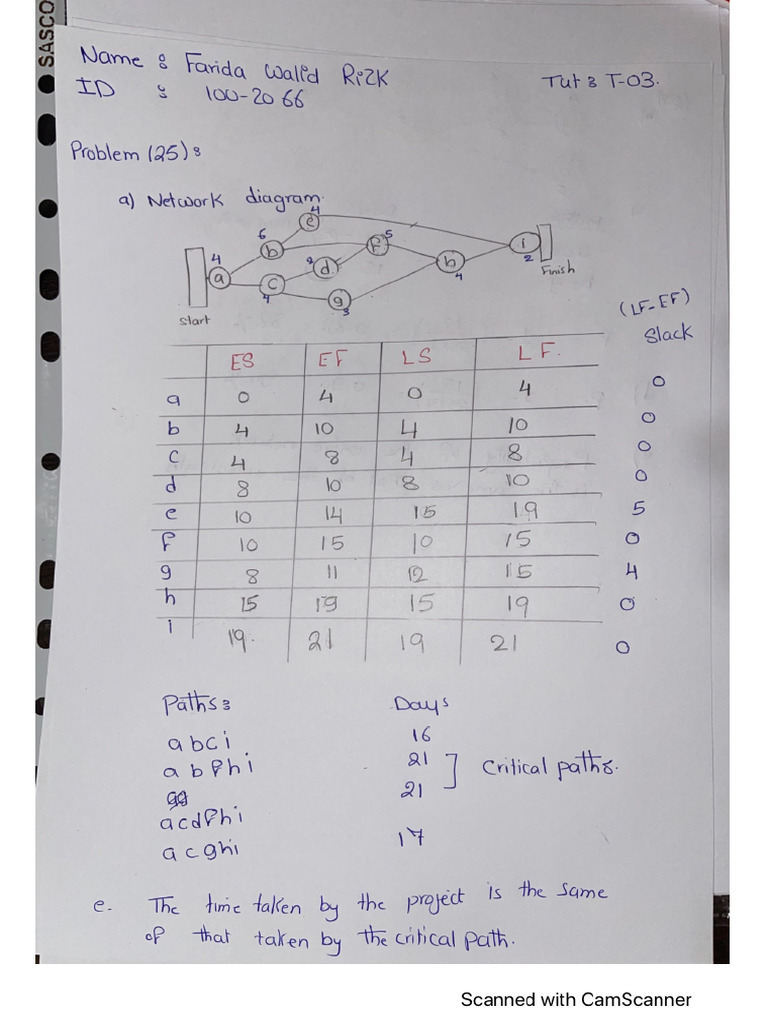 SASCO
Name : Farida Walid Rizk
ID : 100-2066
Tut : T-03.
Problem (25) :
a) Network diagram.
4
e
6
b
5
f
i
2
Finish
4
a
2
d
h
4
c
4
g
3
Start
(LF-EF)
Slack
ES EF LS LF.
a 0 4 0 4 0
b 4 10 4 10 0
c 4 8 4 8 0
d 8 10 8 10 0
e 10 14 15 19 5
f 10 15 10 15 0
g 8 11 12 15 4
h 15 19 15 19 0
i 19. 21 19 21 0
Paths : Days
abei 16
abfhi 21
] Critical paths.
acdfhi 21
acghi 17
e. The time taken by the project is the same
of that taken by the critical path.
Scanned with CamScanner